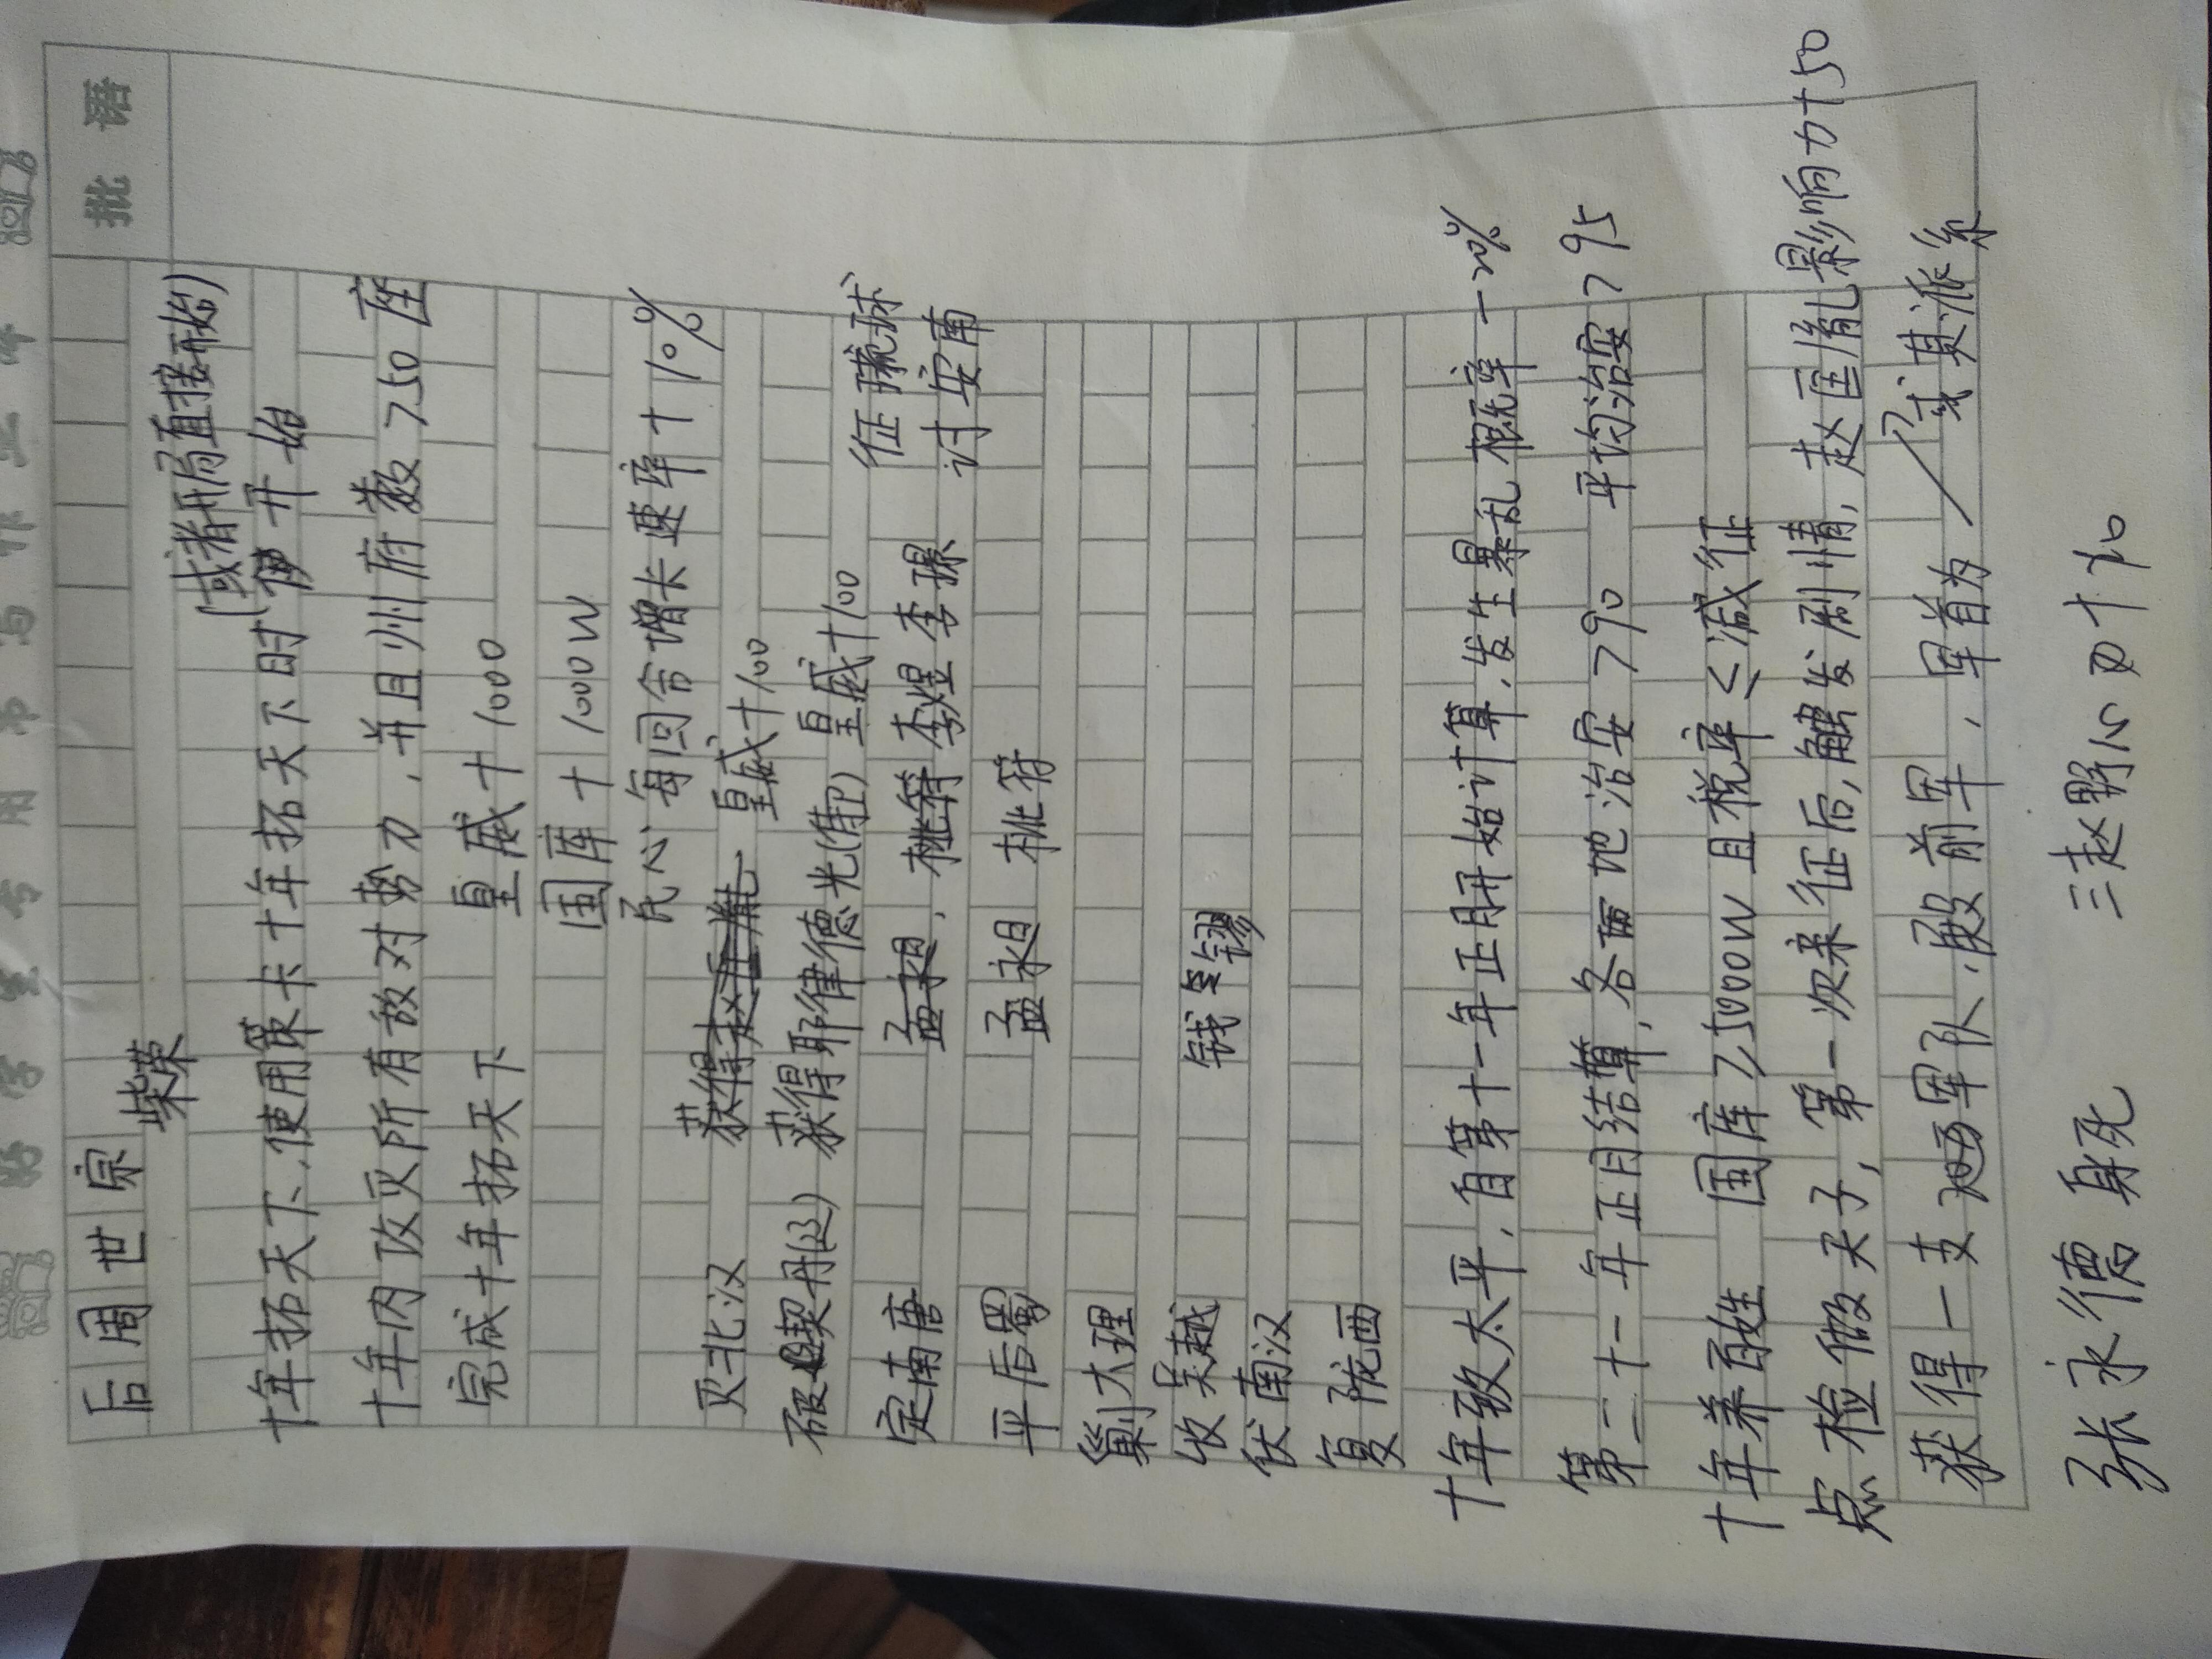 批 语
后周世宗
柴荣
(或者开局直接开始)
十年拓天下,使用策卡十年拓天下时开始
十年内攻灭所有敌对势力,并且州府数>50座
完成十年拓天下 皇威+1000
国库+1000W
民心每回合增长速率+10%
灭北汉 获得赵匡胤 皇威+100
破契丹(辽) 获得耶律德光(俘) 皇威+100 征琉球
定南唐 孟昶,桃符 李煜 李璟 讨安南
平后蜀 孟昶 桃符
剿大理
收吴越 钱弘
伏南汉
复陇西
十年致太平,自第十一年正月开始计算,发生暴乱概率-20%
第二十一年正月结算,各地治安>90 平均治安>95
十年养百姓 国库≥5000W且税率≤减征
点检做天子,第一次亲征后,触发剧情,赵匡胤影响力+50
获得一支军队,殿前军,军首为
或其派系
张永德 身死 三赵野心四十加